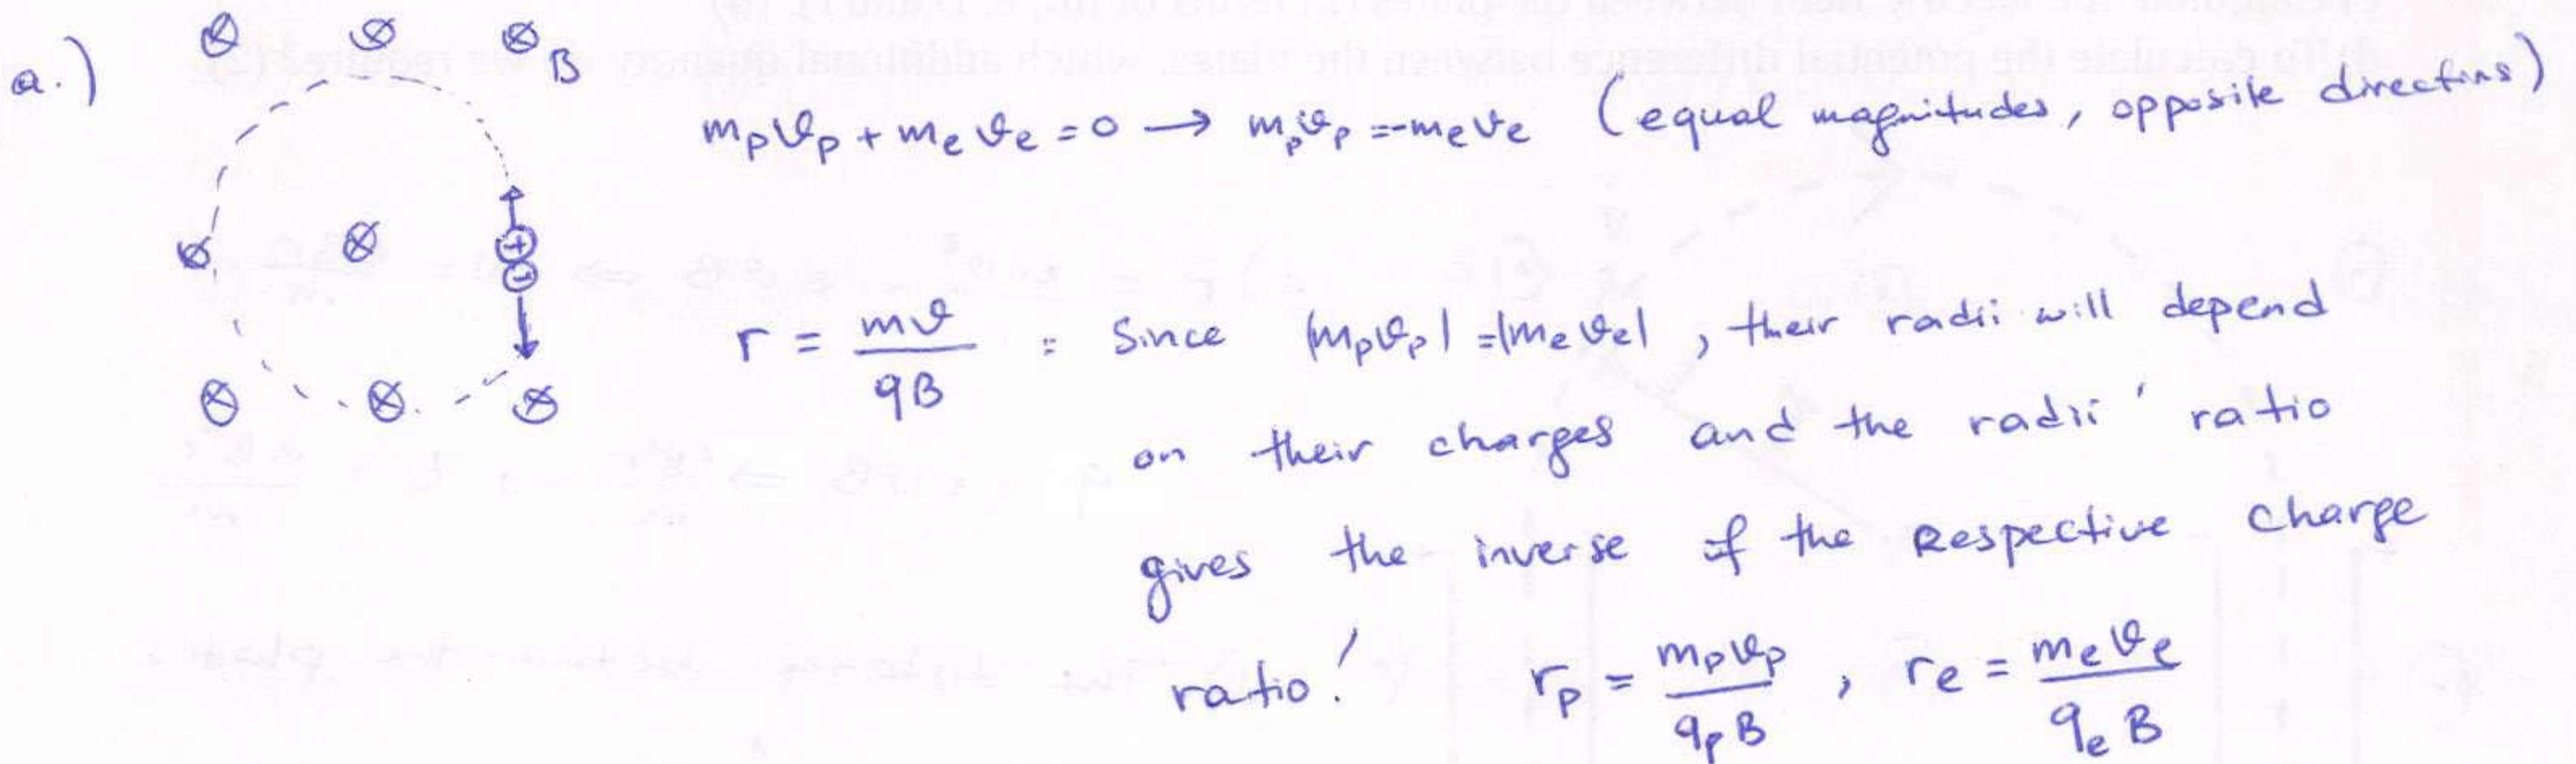 a.)
B
m_p v_p + m_e v_e = 0 → m_p v_p = -m_e v_e (equal magnitudes, opposite directions)
r = mv / qB : Since |m_p v_p| = |m_e v_e| , their radii will depend
on their charges and the radii' ratio
gives the inverse of the Respective charge
ratio! r_p = m_p v_p / q_p B , r_e = m_e v_e / q_e B